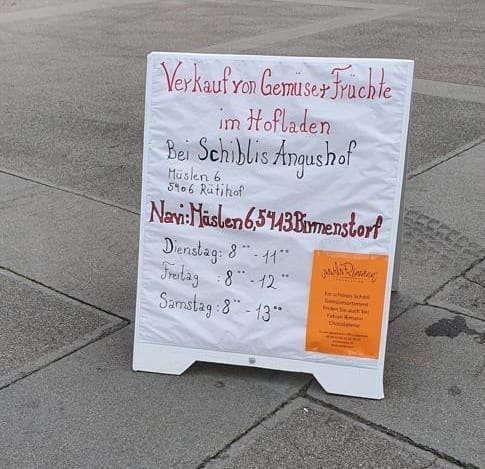 Verkauf von Gemüse + Früchte
im Hofladen
Bei Schiblis Angushof
Müslen 6
5406 Rütihof
Navi: Müslen 6, 5413 Birmenstorf
Dienstag: 8°° - 11°°
Freitag : 8°° - 12°°
Samstag : 8°° - 13°°
Ein schönes Schibli
Gemüsesortiment
finden Sie auch bei
Fabian Rimann
Chocolaterie